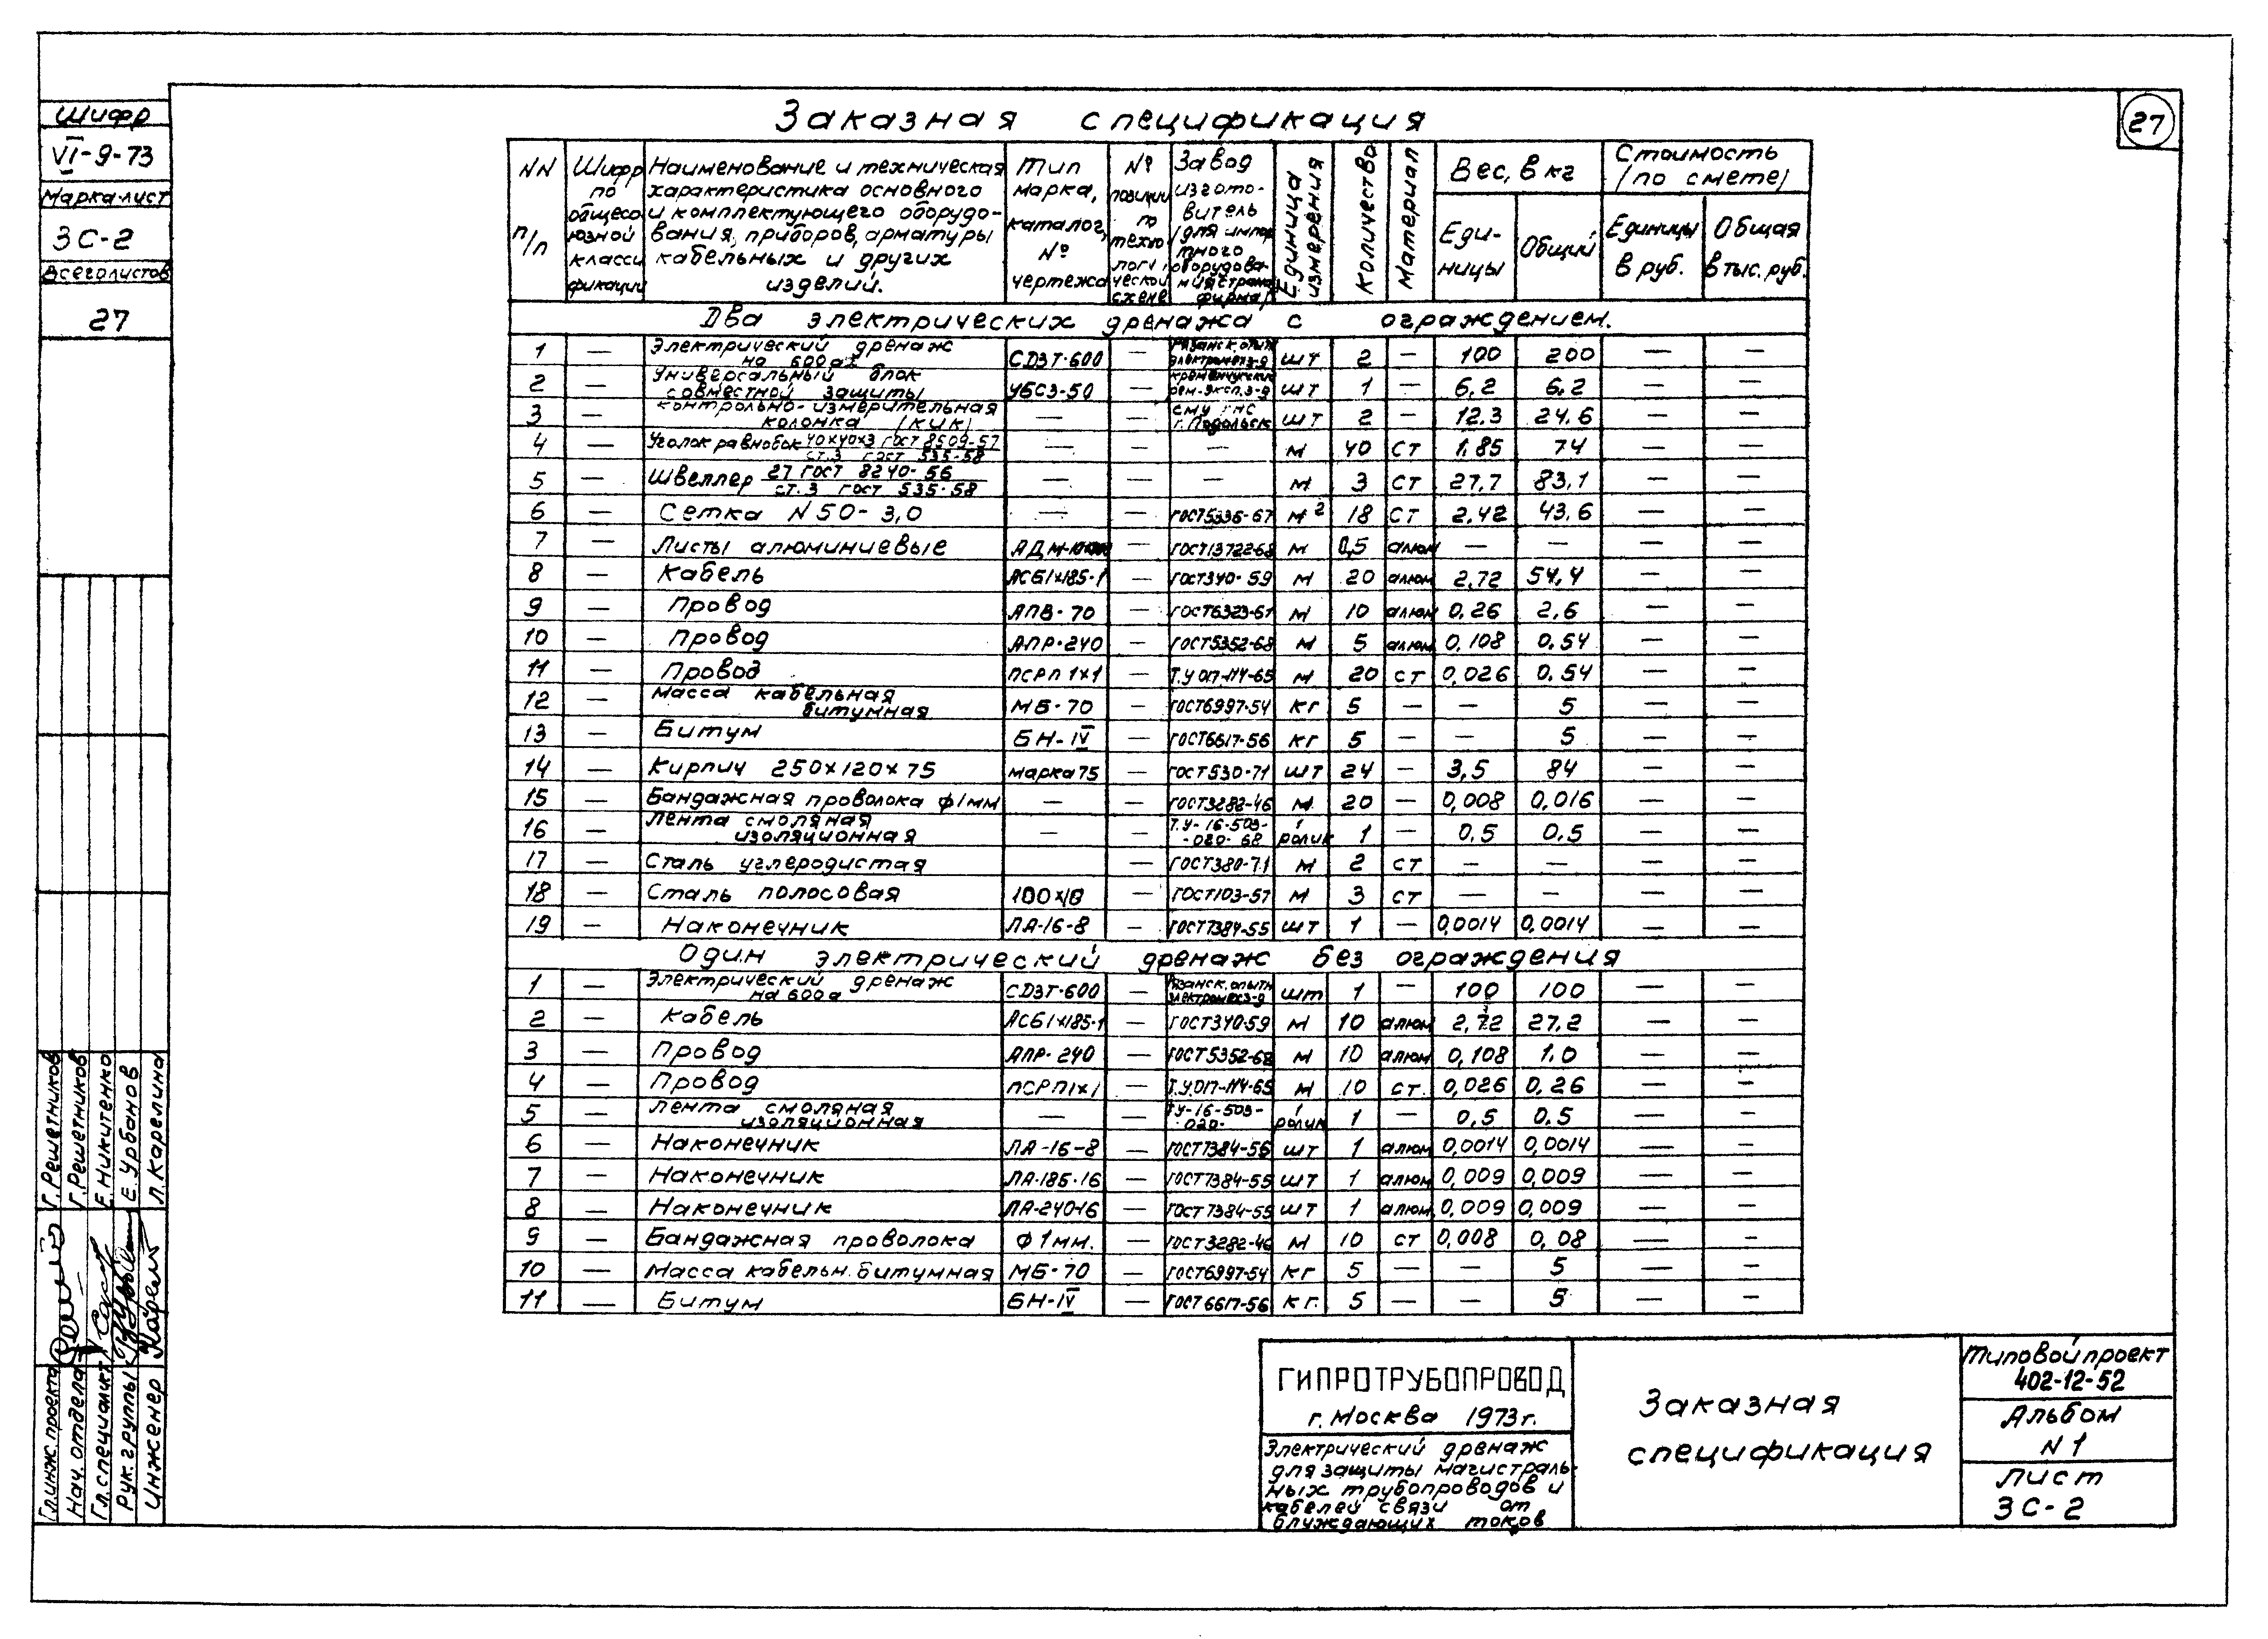 Заказная спецификация
27
Шифр
VI-9-73
Марка-лист
ЗС-2
Всего листов
27
NN п/п
Шифр по общесоюзной классификации
Наименование и техническая
характеристика основного
и комплектующего оборудо-
вания, приборов, арматуры
кабельных и других
изделий.
Тип марка, каталог, № чертежа
№ позиции по технологической схеме
Завод изготовитель
Единица измерения
Количество
Материал
Вес, в кг
Единицы
Общий
Стоимость /по смете/
Единицы в руб.
Общая в тыс. руб.
Два электрических дренажа с ограждением.
1 — Электрический дренаж на 600а СДЗТ-600 — Рязанск. опытн. электромех з-д шт 2 — 100 200 — —
2 — Универсальный блок совместной защиты УБСЗ-50 — рем-эксп. з-д шт 1 — 6,2 6,2 — —
3 — Контрольно-измерительная колонка /КИК/ — — СМУ г. Подольск шт 2 — 12.3 24.6 — —
4 — Уголок равнобок 40х40х3 ГОСТ 8509-57 ст.3 ГОСТ 535-58 — — — м 40 ст 1.85 74 — —
5 — Швеллер 27 ГОСТ 8240-56 ст.3 ГОСТ 535-58 — — — м 3 ст 27.7 83,1 — —
6 — Сетка N50-3,0 — — ГОСТ5336-67 м² 18 ст 2.42 43.6 — —
7 — Листы алюминиевые — ГОСТ13722-68 м 0,5 алюм — — — —
8 — Кабель АСБ1х185-1 — ГОСТ340-59 м 20 алюм 2.72 54.4 — —
9 — Провод АПВ-70 — ГОСТ6323-61 м 10 алюм 0,26 2,6 — —
10 — Провод АПР-240 — ГОСТ5352-68 м 5 алюм 0,108 0.54 — —
11 — Провод ПСРП 1х1 — Т.У 017-114-65 м 20 ст 0,026 0.54 — —
12 — Масса кабельная битумная МБ-70 — ГОСТ6997-54 кг 5 — — 5 — —
13 — Битум БН-IV — ГОСТ6617-56 кг 5 — — 5 — —
14 — Кирпич 250х120х75 марка 75 — ГОСТ530-71 шт 24 — 3,5 84 — —
15 — Бандажная проволока ф1мм — — ГОСТ3282-46 м 20 — 0,008 0,016 — —
16 — Лента смоляная изоляционная — — Т.У-16-503-020-68 1 ролик 1 — 0.5 0.5 — —
17 — Сталь углеродистая — ГОСТ380-71 м 2 ст — — — —
18 — Сталь полосовая 100х10 — ГОСТ103-57 м 3 ст — — — —
19 — Наконечник ЛА-16-8 — ГОСТ7384-55 шт 1 — 0,0014 0,0014 — —
Один электрический дренаж без ограждения
1 — Электрический дренаж на 600а СДЗТ-600 — Рязанск. опытн электромех з-д шт 1 — 100 100 — —
2 — Кабель АСБ1х185-1 — ГОСТ340-59 м 10 алюм 2,72 27.2 — —
3 — Провод АПР-240 — ГОСТ5352-68 м 10 алюм 0,108 1.0 — —
4 — Провод ПСРП1х1 — Т.У.017-114-65 м 10 ст. 0,026 0,26 — —
5 — Лента смоляная изоляционная — — ТУ-16-503-020- 1 ролик 1 — 0,5 0.5 — —
6 — Наконечник ЛА-16-8 — ГОСТ7384-56 шт 1 алюм 0,0014 0,0014 — —
7 — Наконечник ЛА-185-16 — ГОСТ7384-55 шт 1 алюм 0,009 0,009 — —
8 — Наконечник ЛА-240-16 — ГОСТ7384-55 шт 1 алюм 0,009 0,009 — —
9 — Бандажная проволока ф1мм. — ГОСТ3282-46 м 10 ст 0,008 0,08 — —
10 — Масса кабельн. битумная МБ-70 — ГОСТ6997-54 кг 5 — — 5 — —
11 — Битум БН-IV — ГОСТ6617-56 кг. 5 — — 5 — —
Гл.инж.проекта Г.Решетников
Нач. отдела Г.Решетников
Гл.специалист Е.Никитенко
Рук.группы Е.Урбанов
Инженер Л.Карелина
ГИПРОТРУБОПРОВОД
г. Москва 1973г.
Электрический дренаж
для защиты магистраль-
ных трубопроводов и
кабелей связи от
блуждающих токов
Заказная
спецификация
Типовой проект
402-12-52
Альбом
N1
Лист
ЗС-2